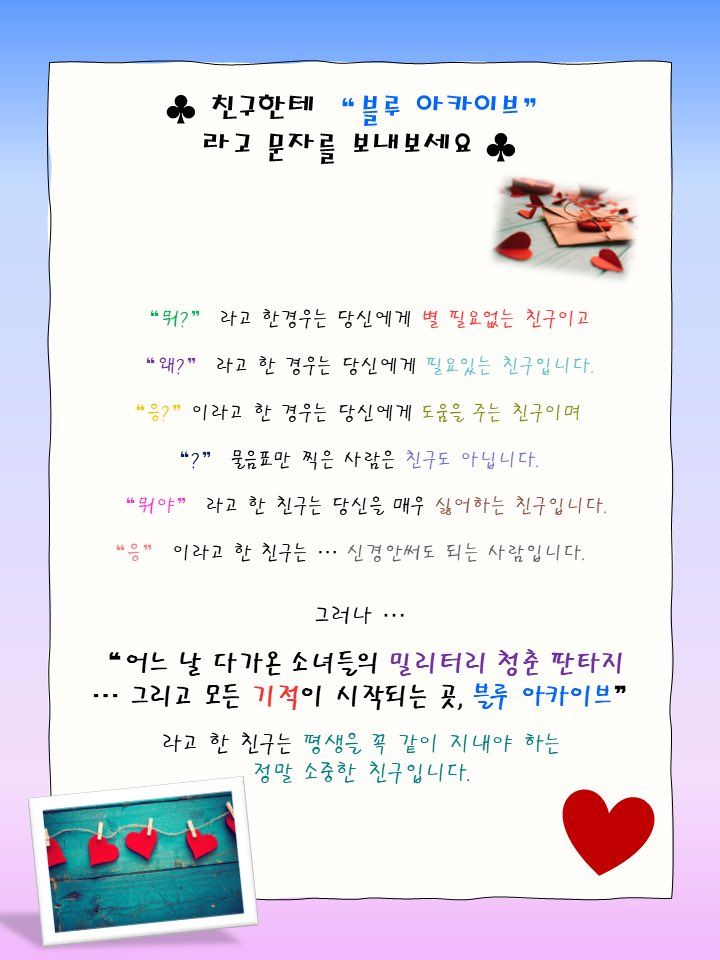 ♣ 친구한테 “블루 아카이브”
라고 문자를 보내보세요 ♣
“뭐?” 라고 한경우는 당신에게 별 필요없는 친구이고
“왜?” 라고 한 경우는 당신에게 필요있는 친구입니다.
“응?” 이라고 한 경우는 당신에게 도움을 주는 친구이며
“?” 물음표만 찍은 사람은 친구도 아닙니다.
“뭐야” 라고 한 친구는 당신을 매우 싫어하는 친구입니다.
“응” 이라고 한 친구는 … 신경안써도 되는 사람입니다.
그러나 …
“어느 날 다가온 소녀들의 밀리터리 청춘 판타지
… 그리고 모든 기적이 시작되는 곳, 블루 아카이브”
라고 한 친구는 평생을 꼭 같이 지내야 하는
정말 소중한 친구입니다.